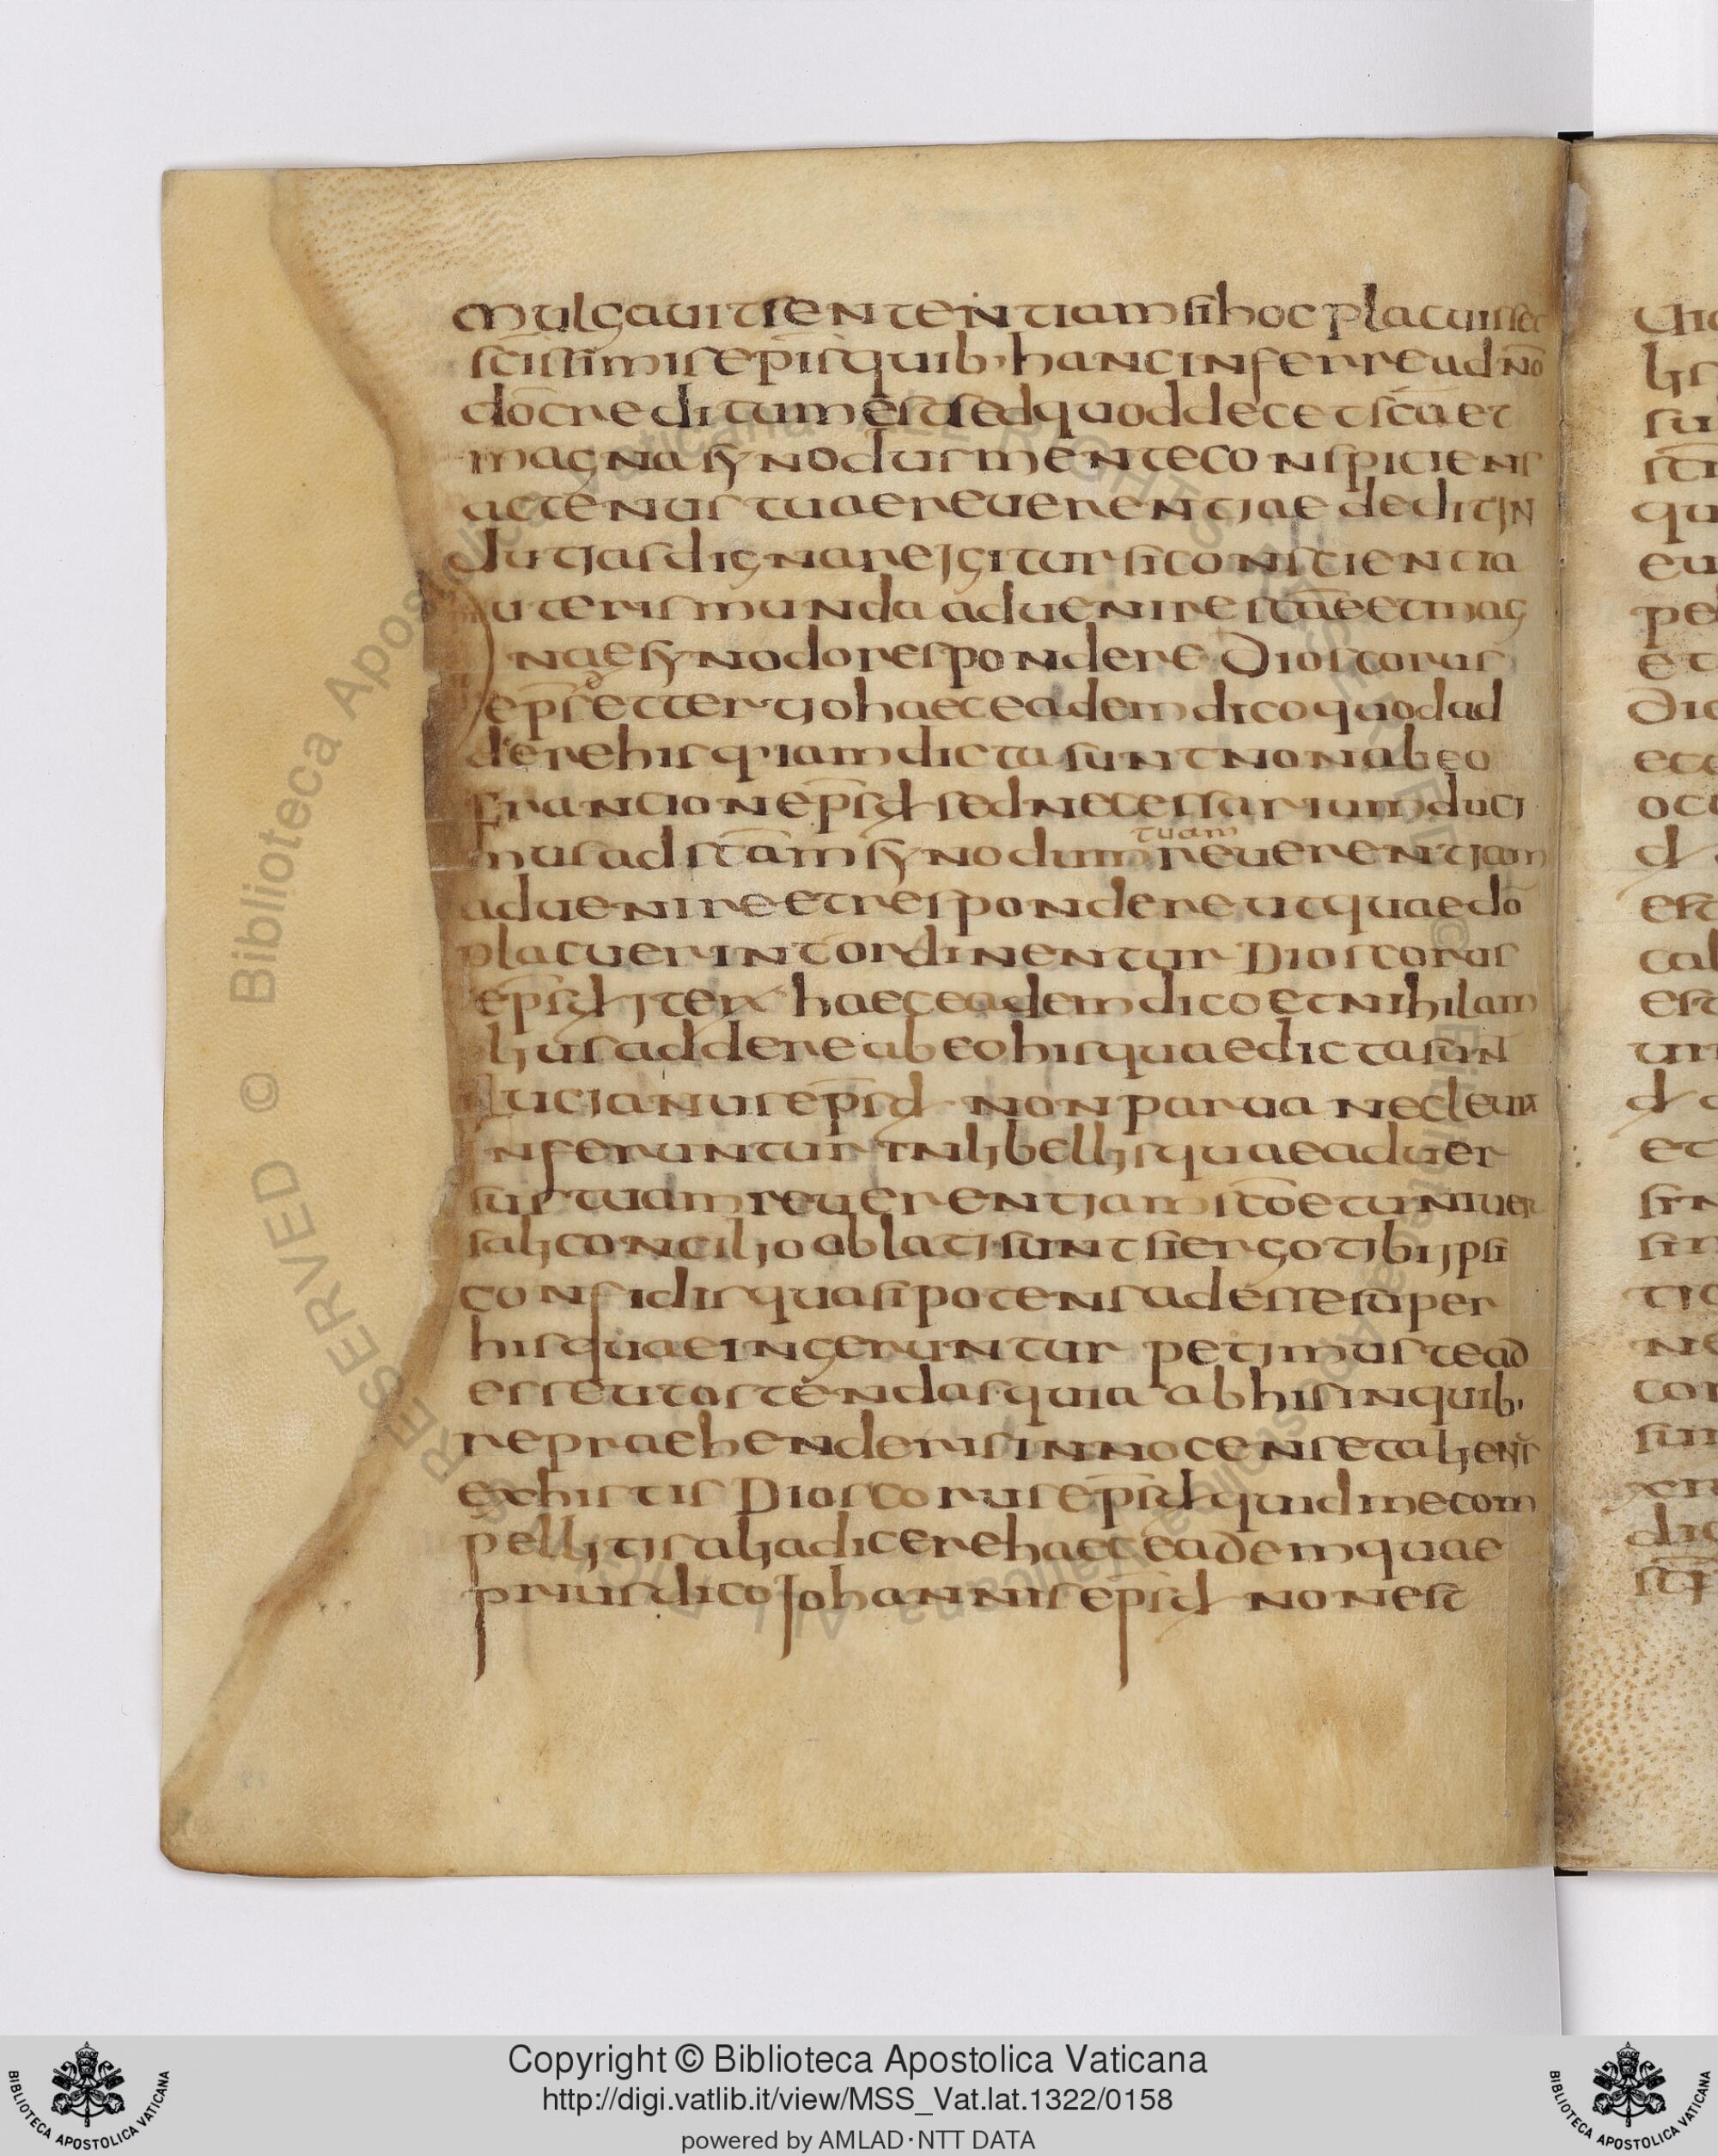 mulgauit sententiam si hoc placuisset
sc̄issimis ep̄is quib· hanc inferre ad nō
dō creditum est sed quod decet sc̄a et
magna synodus mente conspiciens
actenus tuae reuerentiae dedit in
dutias dignare igitur si conscientia
uteris munda aduenire sc̄ae et mag
nae synodo respondere Dioscorus
ep̄s et tertio haec eadem dico quod ad
dere his q· iam dicta sunt non abeo
francion ep̄s d̄ sed necessarium duci
tuam
mus ad sc̄am synodum reuerentiam
aduenire et respondere ut quae dō
placuerint ordinentur Dioscorus
ep̄s d̄ iter haec eadem dico et nihil am
lius addere abeo his quae dicta sun
Lucianus ep̄s d̄ non parua nec leuia
inferuntur in libellis quae aduer
sus tuam reuerentiam sc̄o et uniuer
sali concilio oblati sunt si ergo tibi ipsi
confidis quasi potens adesse super
his quae ingeruntur petimus te ad
esse ut ostendas quia ab his in quib·
repraehenderis innocens et aliens
exhistis Dioscorus ep̄s d̄ quid me com
pellitis alia dicere haec eadem quae
prius dico Iohannis ep̄s d̄ non est
Copyright © Biblioteca Apostolica Vaticana
http://digi.vatlib.it/view/MSS_Vat.lat.1322/0158
powered by AMLAD·NTT DATA
BIBLIOTECA APOSTOLICA VATICANA
BIBLIOTECA APOSTOLICA VATICANA